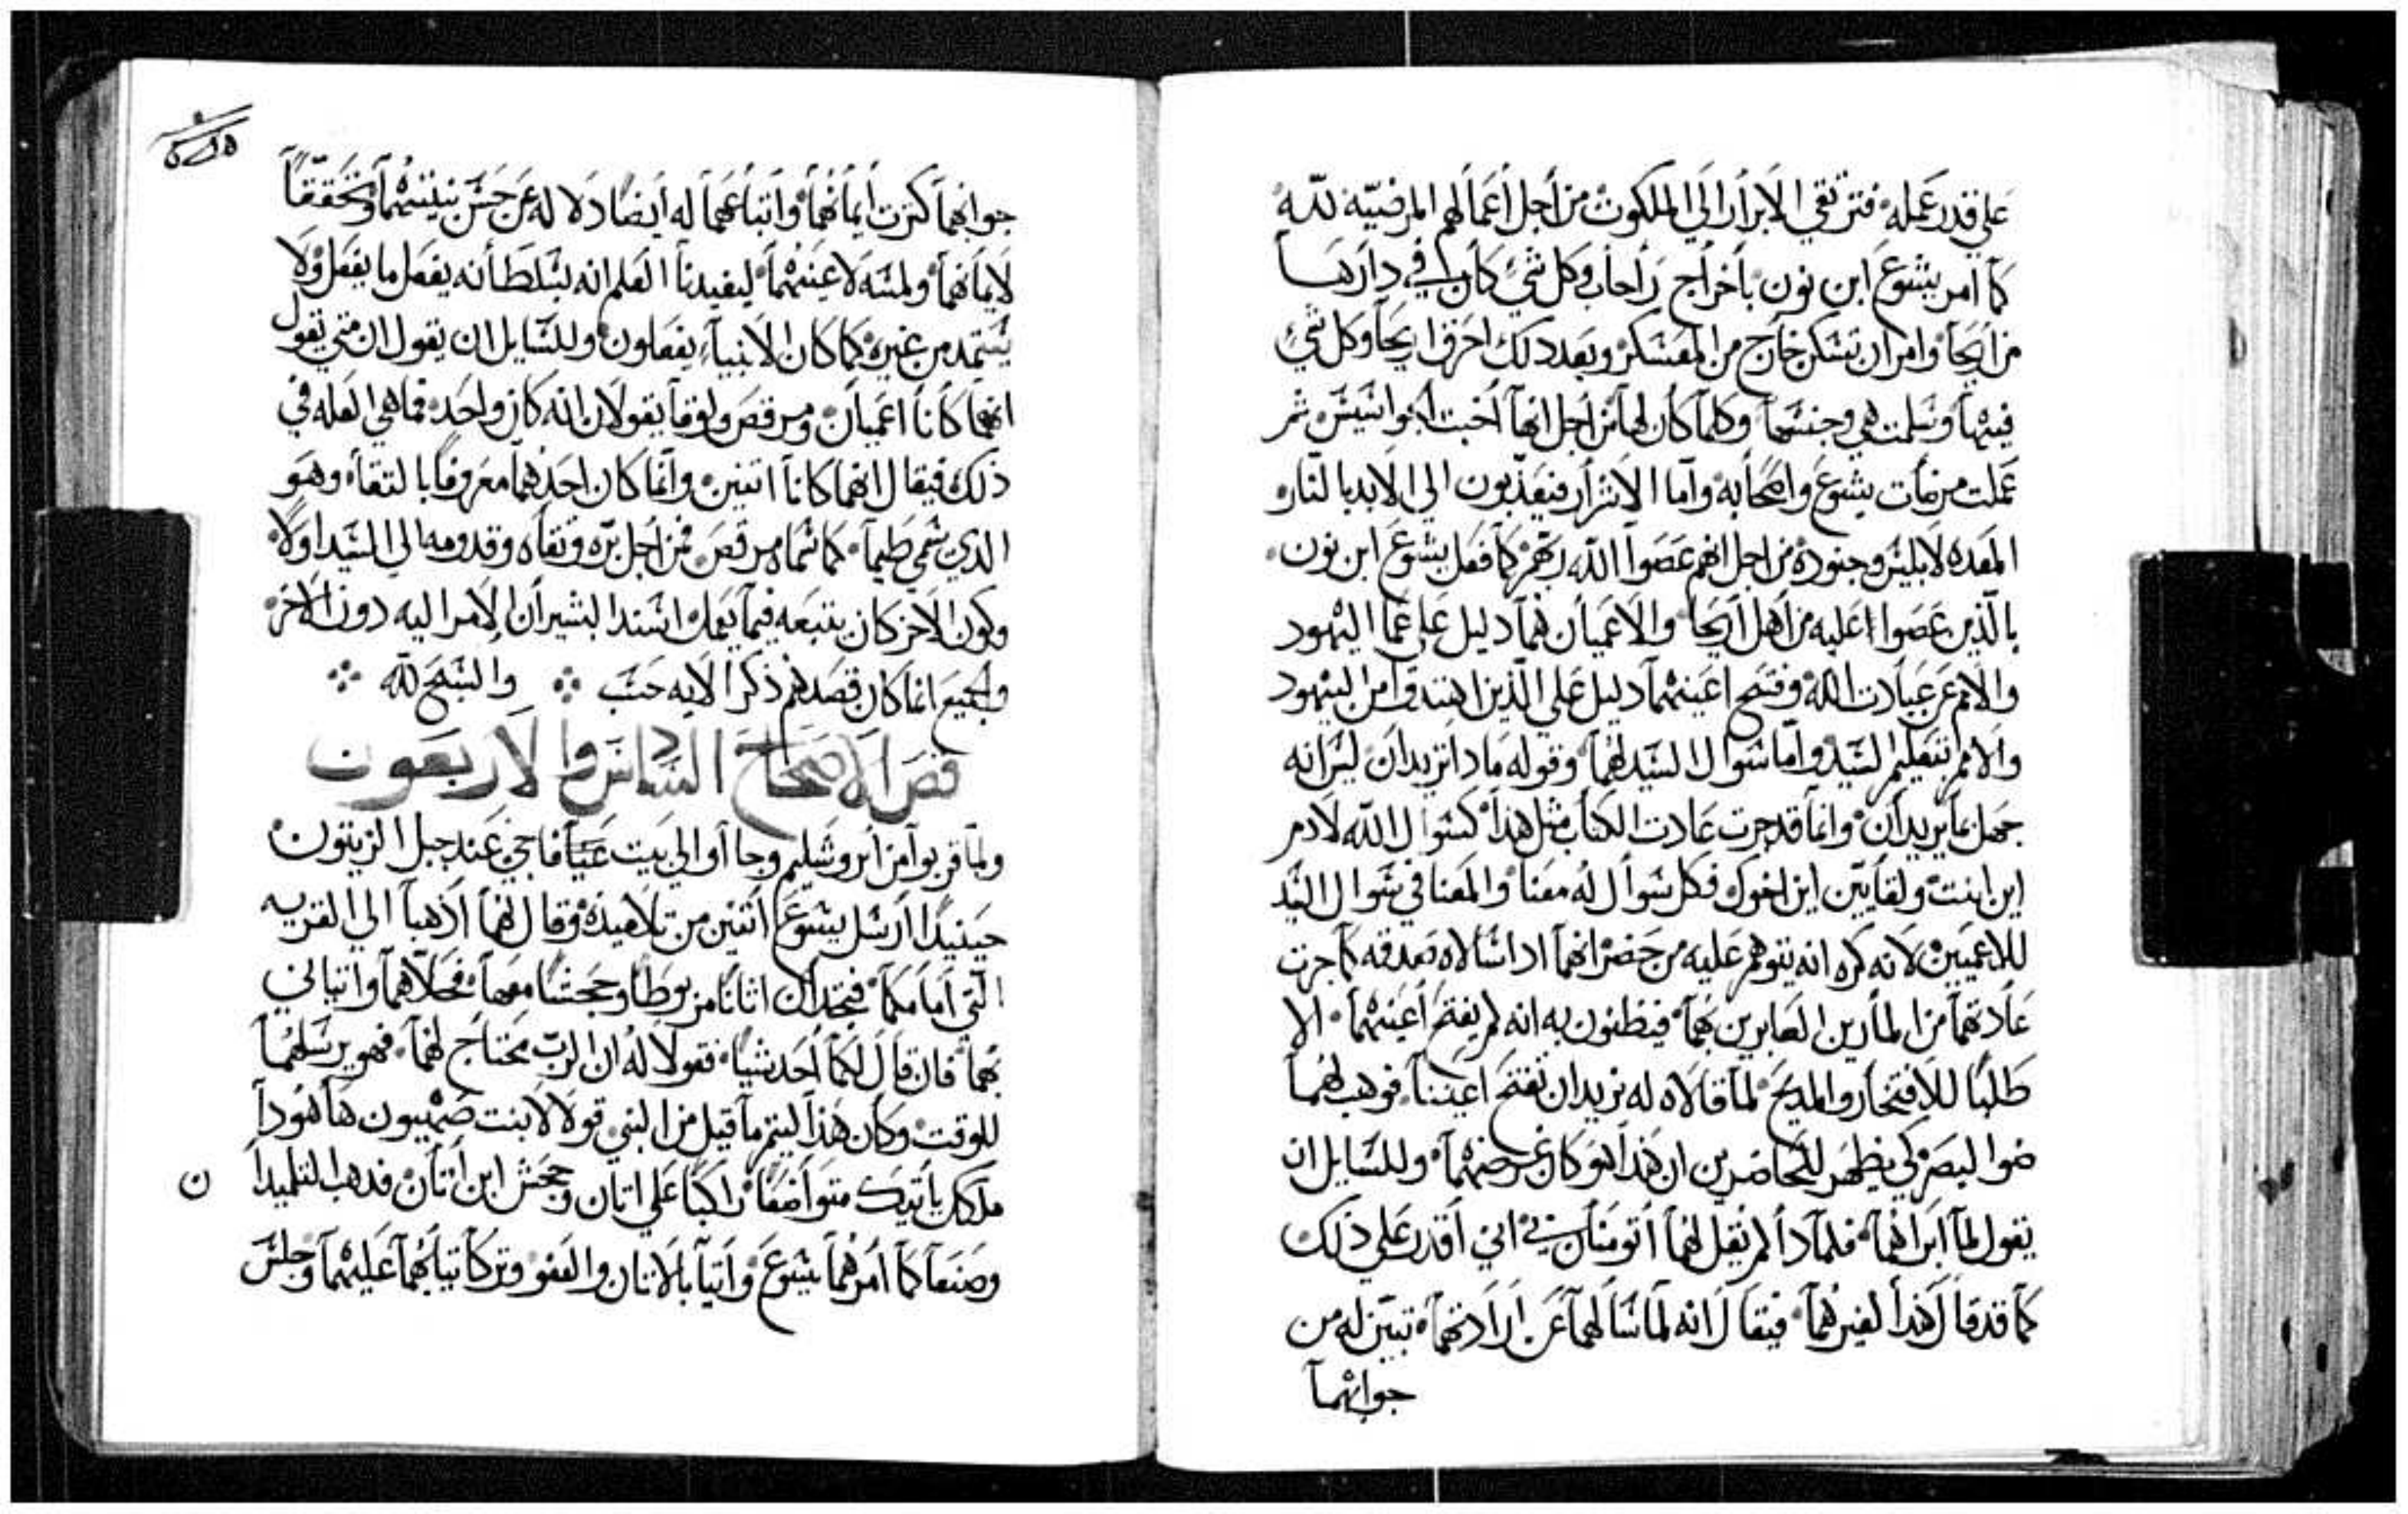 على قدر عمله فترتقي الابرار الي الملكوت من اجل اعمالهم المرضيّه لله
كما امر يشوع ابن نون باخراج راحاب وكل شي كان لها في دارها
من اريحا وامر ان تسكن خارج من المعسكر وبعد دلك احرق اريحا وكل شي
فيها وسلمت هي وجنسها وكلما كان لها من اجل انها اخبت الجواسيس ثم
عملت مرضات يشوع واصحابه واما الاشرار فيعذبون الي الابد بالنار
المعده لابليس وجنوده من اجل انهم عصوا الله ربهم كما فعل يشوع ابن نون
بالذين عصوا عليه من اهل اريحا والاعميان فهما دليل على عما اليهود
والامم عن عبادت الله وفتح اعينهما دليل على الذين اهتدوا من اليهود
والامم بتعليم السيد واما سوال السيد لهما وقوله مادا تريدان ليس انه
جهل ما يريدان وانما قد جرت عادت الكتاب مثل هذا كسوال الله لادم
اين انت ولقايين اين اخوك فكل سوال له معنا والمعنا في سوال السيد
للاعميين لانه كره انه يتوهم عليه من حضر انهما اد اسالاه صدقه كما جرت
عادتهما من المارين العابرين بهما فيظنون به انه لم يفتح اعينهما الا
طلبا للافتخار والمديح لما قالاه له نريد ان تفتح اعيننا فوهب لهما
ضوا البصر لكي يظهر للحاضرين ان هذا هو كان غرضهما وللسايل ان
يقول لما ابراهما فلمادا لم يقل لهما اتومنان بي اني اقدر على ذلك
كما قد قال هذا لغيرهما فيقال انه لما سالهما عن ارادتهما تبين له من
جوابهما
جوابهما كثرت ايمانهما واتباعهما له ايضا دلاله عن حسن نيتهما وتحققا
لايمانهما ولمسه لاعينهما ليفيدنا العلم انه بسلطانه يفعل ما يفعل ولا
يستمد من غيره كما كان الانبياء يفعلون وللسايل ان يقول ان متي يقول
انهما كانا اعميان ومرقص ولوقا يقولان انه كان واحد فما هي العله في
ذلك فيقال انهما كانا اتنين وانما كان احدهما معروفا بالتقاء وهو
الذي سمي طيما كما سماه مرقص فمن اجل بره وتقاه وقدومه الي السيد اولا
وكون الاخر كان يتبعه فيما يعمل اسند البشير ان الامر اليه دون الاخر
والجميع انما كان قصدهم ذكر الايه حسب والسبح لله
فص الاصحاح السادس والاربعون
ولما قربوا من اروشليم وجا أوا الي بيت عنيا فاجي عند جبل الزيتون
حينيدا ارسل يشوع اثنين من تلاميذه وقال لهما اذهبا الي القريه
التي امامكما فتجدان اتانا مربوطا وجحشا معها فحلاهما واتياني
بهما فان قال لكما احد شيا فقولا له ان الرب محتاج لهما فهو يرسلهما
للوقت وكان هذا ليتم ما قيل من النبي قولا لابنت صهيون هاهودا
ملكك ياتيك متواضعا راكبا على اتان وجحش ابن اتان فدهب التلميدا
ن
وصنعا كما امرهما يشوع واتيا بالاتان والعفو وتركا تيابهما عليهما وجلس